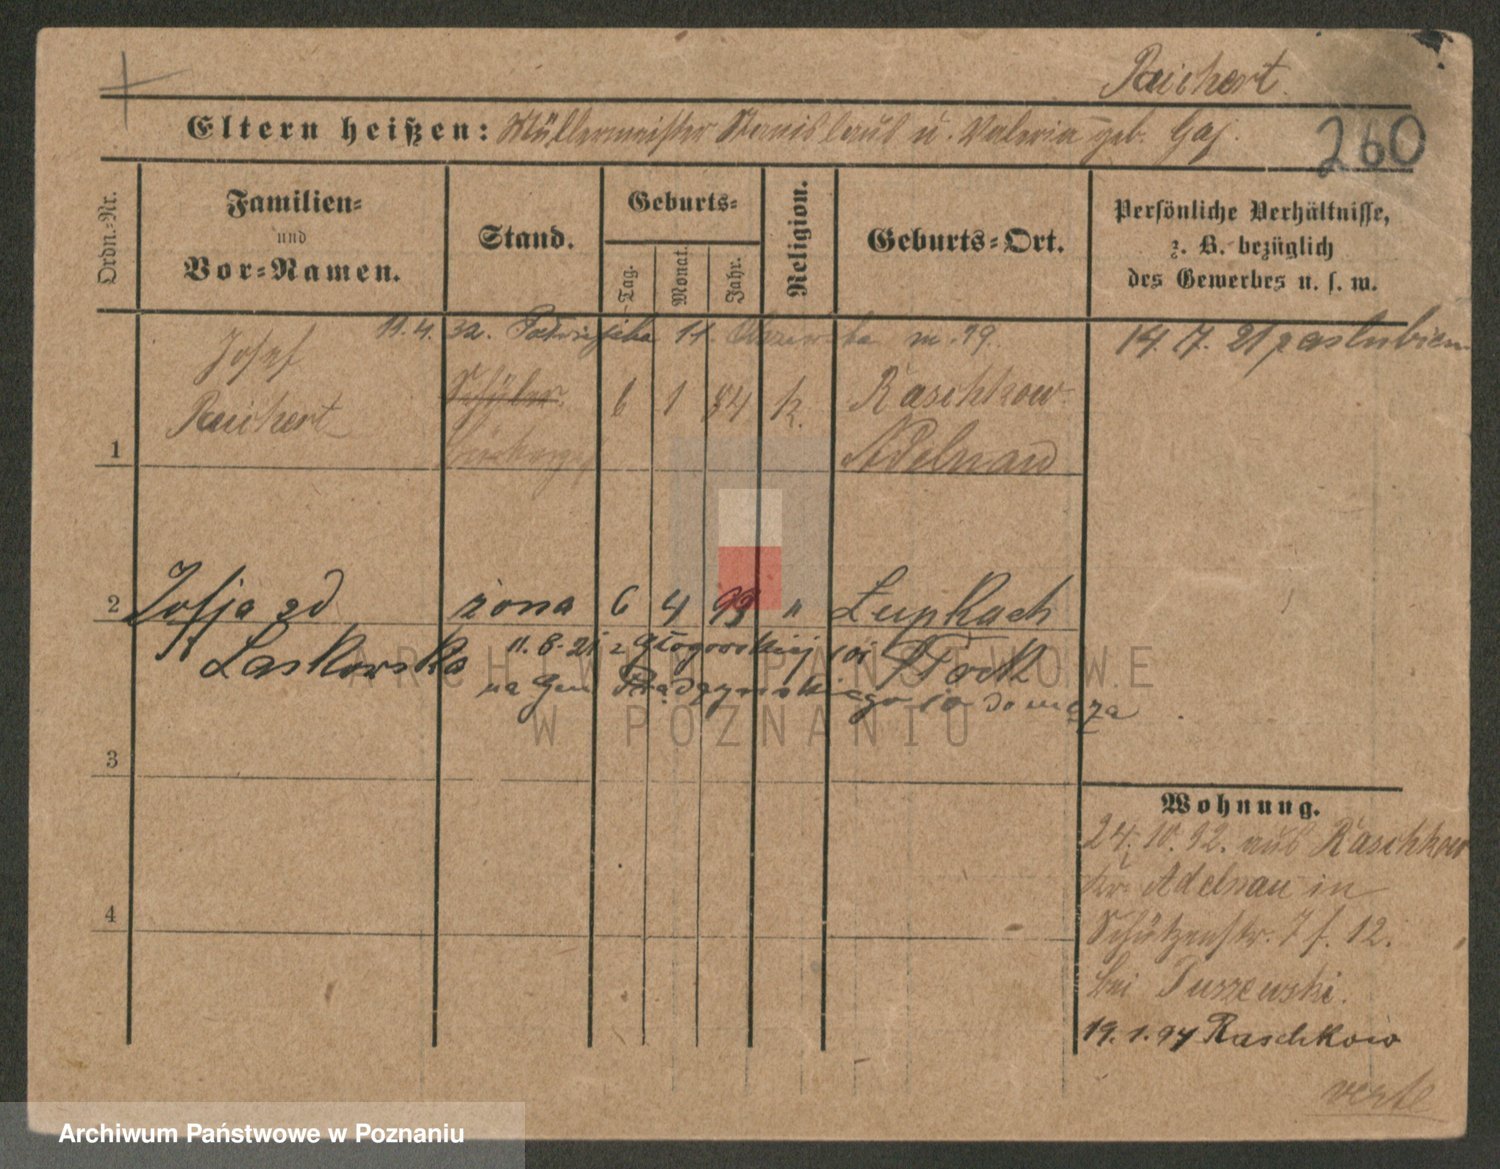 Reichert
Eltern heißen: Müllermeister Stanislaus u. Valeria geb. Gaj.
260
Ordn.-Nr.
Familien-
und
Vor-Namen.
Stand.
Geburts-
Tag.
Monat.
Jahr.
Religion.
Geburts-Ort.
Persönliche Verhältnisse,
z. B. bezüglich
des Gewerbes u. s. w.
11.4.32. 11 m. 19.
14. 7. 21 zaslubiem
Josef
Reichert
1
Schüler
6 1 84 k.
Raschkow
Adelnau
2
Zofja zd
Laskowska
żona 6 4 99 "
11.8.21 z Głogowskiej 101
na Gen Prądzyńskiego 10 do męża
3
4
Wohnung.
24. 10. 92. aus Raschkow
Kr. Adelnau in
Schützenstr. 7 f. 12.
bei Puszewski.
19. 1. 94 Raschkow
verte
ARCHIWUM PAŃSTWOWE
W POZNANIU
Archiwum Państwowe w Poznaniu